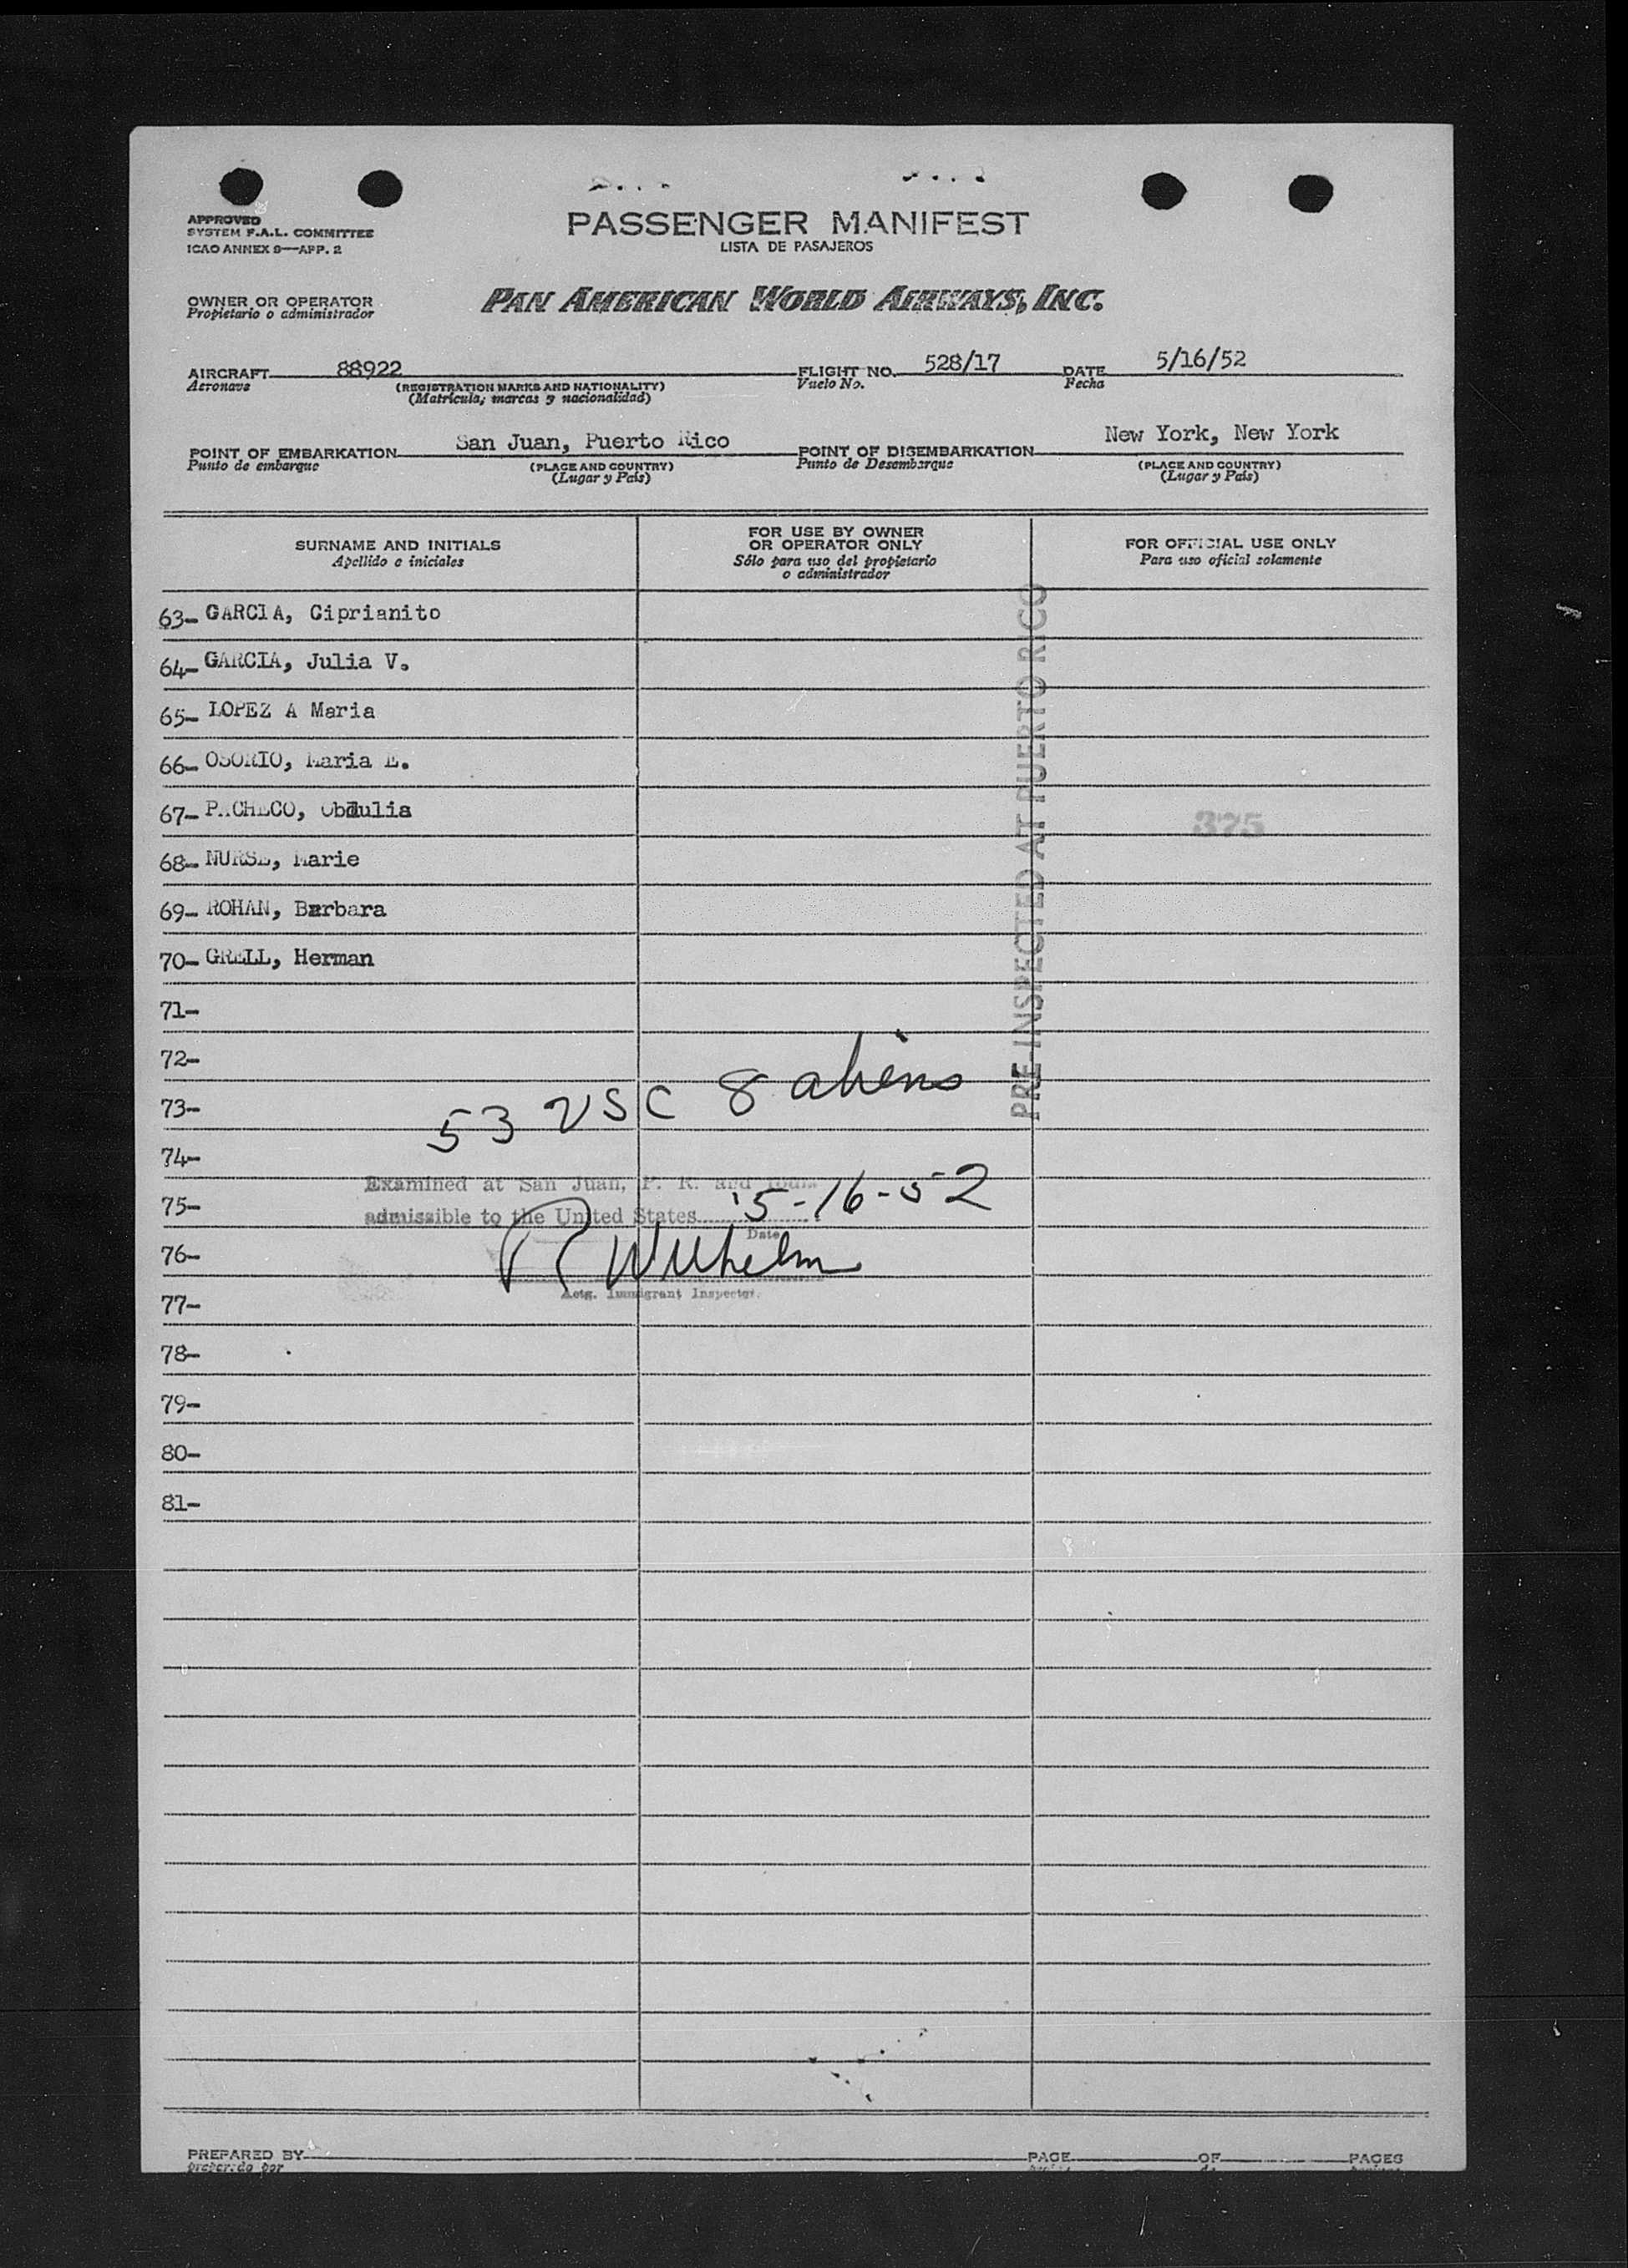 APPROVED
SYSTEM F.A.L. COMMITTEE
ICAO ANNEX 9—APP. 2
PASSENGER MANIFEST
LISTA DE PASAJEROS
OWNER OR OPERATOR
Propietario o administrador
PAN AMERICAN WORLD AIRWAYS, INC.
AIRCRAFT 88922 FLIGHT NO. 528/17 DATE 5/16/52
Aeronave (REGISTRATION MARKS AND NATIONALITY) Vuelo No. Fecha
(Matrícula, marcas y nacionalidad)
POINT OF EMBARKATION San Juan, Puerto Rico POINT OF DISEMBARKATION New York, New York
Punto de embarque (PLACE AND COUNTRY) Punto de Desembarque (PLACE AND COUNTRY)
(Lugar y País) (Lugar y País)
SURNAME AND INITIALS
Apellido e iniciales
FOR USE BY OWNER
OR OPERATOR ONLY
Sólo para uso del propietario
o administrador
FOR OFFICIAL USE ONLY
Para uso oficial solamente
63- GARCIA, Ciprianito
64- GARCIA, Julia V.
65- LOPEZ A Maria
66- OSORIO, Maria E.
67- PACHECO, Obdulia
375
68- NURSE, Marie
69- ROHAN, Barbara
70- GRELL, Herman
PRE-INSPECTED AT PUERTO RICO
71-
72-
73-
53 USC 8 aliens
74-
Examined at San Juan, P. R. and found
75-
admissible to the United States 5-16-52
Date
76-
R Wilhelm
Actg. Immigrant Inspector.
77-
78-
79-
80-
81-
PREPARED BY PAGE OF PAGES
preparado por